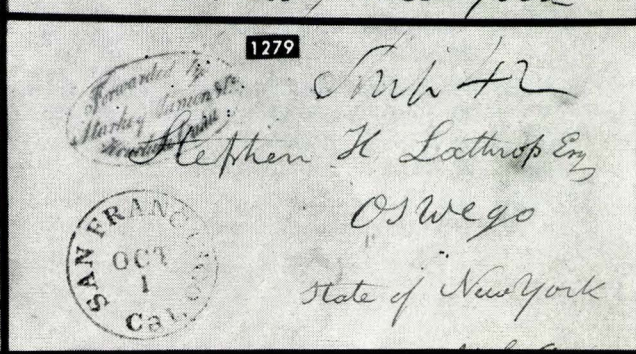 1279
Forwarded by
Starkey Janion & Co.
Ship 42
Stephen H Lathrop Esq
Oswego
State of New York
SAN FRANCISCO
OCT
1
Cal.